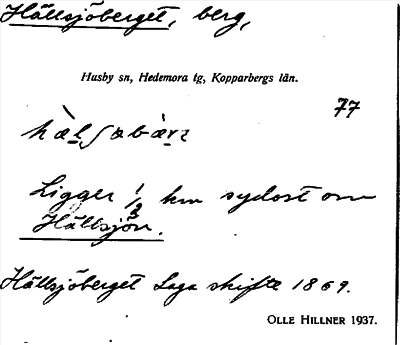 Hällsjöberget, berg,
Husby sn, Hedemora tg, Kopparbergs län.
77
Ligger 1/2 km sydost om
Hällsjön.
Hällsjöberget Laga skifte 1869.
OLLE HILLNER 1937.